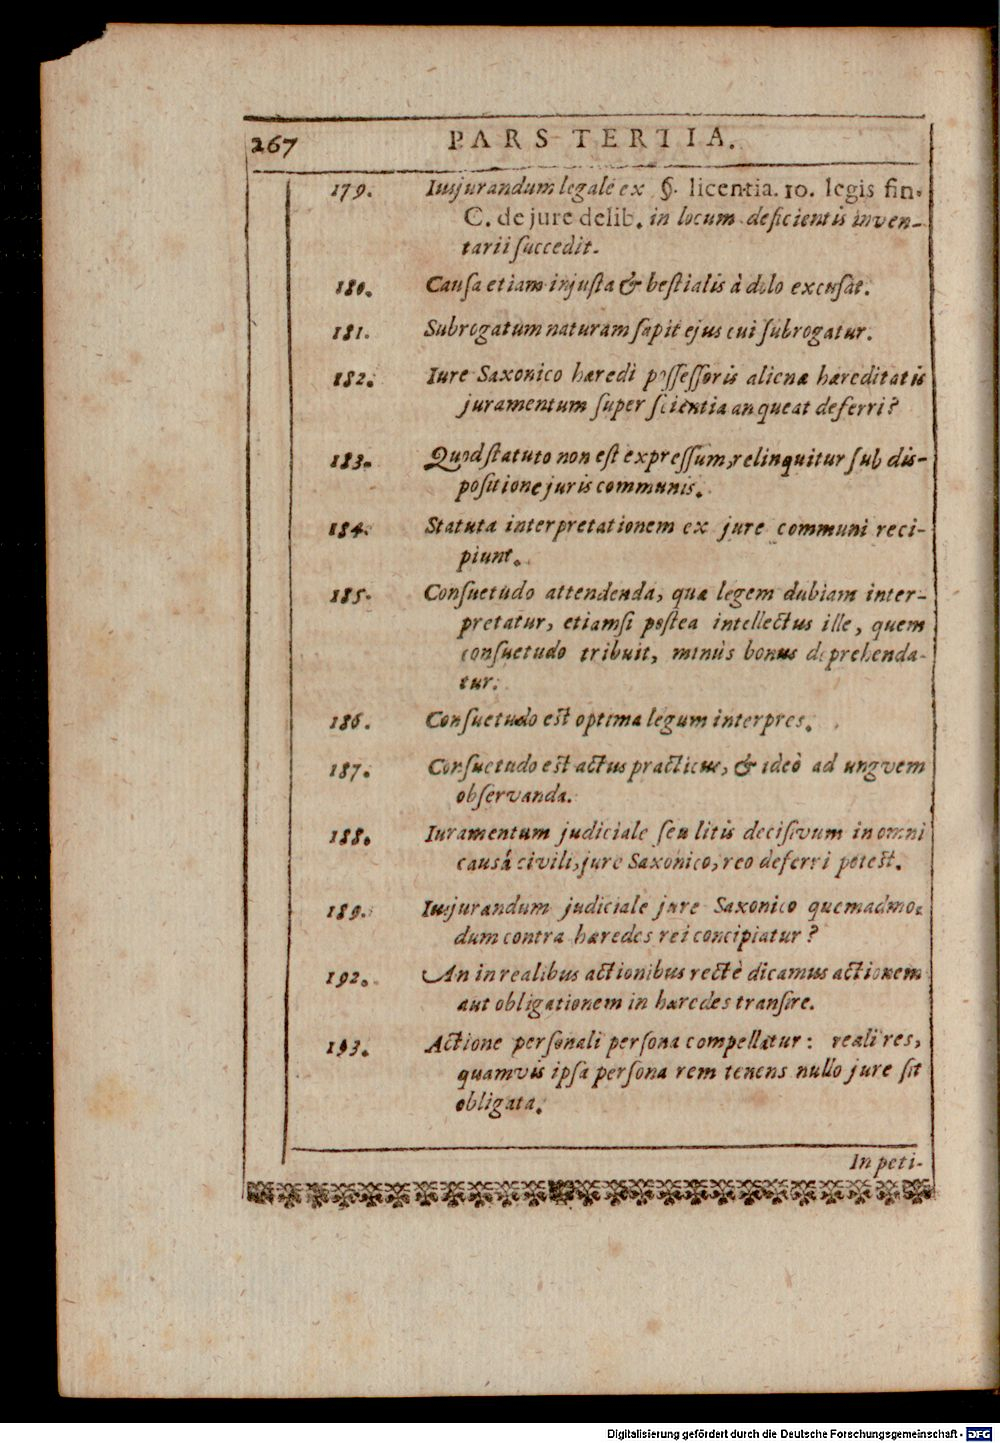 267 PARS TERTIA.
179. Iusjurandum legale ex §. licentia. 10. legis fin.
C. de jure delib. in locum deficientis inven-
tarii succedit.
180. Causa etiam injusta & bestialis à dolo excusat.
181. Subrogatum naturam sapit ejus cui subrogatur.
182. Iure Saxonico hæredi possessoris alienæ hæreditatis
juramentum super scientia an queat deferri?
183. Quod statuto non est expressum, relinquitur sub dis-
positione juris communis.
184. Statuta interpretationem ex jure communi reci-
piunt.
185. Consuetudo attendenda, quæ legem dubiam inter-
pretatur, etiamsi postea intellectus ille, quem
consuetudo tribuit, minùs bonus deprehenda-
tur.
186. Consuetudo est optima legum interpres.
187. Consuetudo est actus practicus, & ideò ad ungvem
observanda.
188. Iuramentum judiciale seu litis decisivum in omni
causâ civili, jure Saxonico, reo deferri potest.
189. Iusjurandum judiciale jure Saxonico quemadmo-
dum contra hæredes rei concipiatur?
192. An in realibus actionibus rectè dicamus actionem
aut obligationem in hæredes transire.
193. Actione personali persona compellatur: reali res,
quamvis ipsa persona rem tenens nullo jure sit
obligata.
In peti-
Digitalisierung gefördert durch die Deutsche Forschungsgemeinschaft - DFG